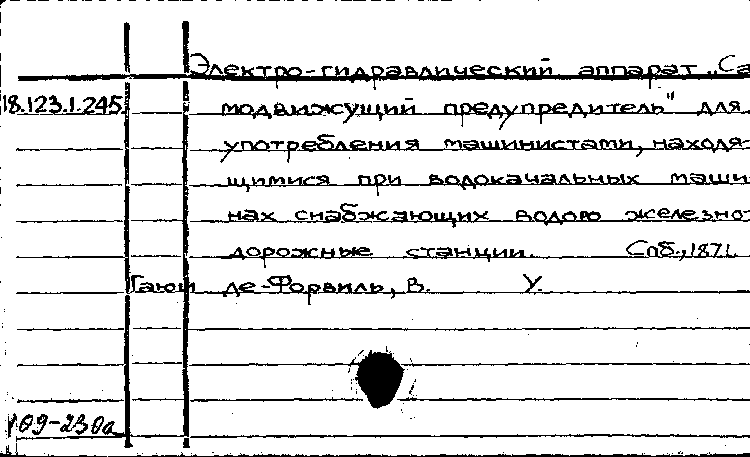 Электро-гидравлический аппарат „Са
18.123.1.245. модвижущий предупредитель" для
употребления машинистами, находя-
щимися при водокачальных маши-
нах снабжающих водою железно-
дорожные станции. Спб., 1871.
де-Форвиль, В. У.
109-230а